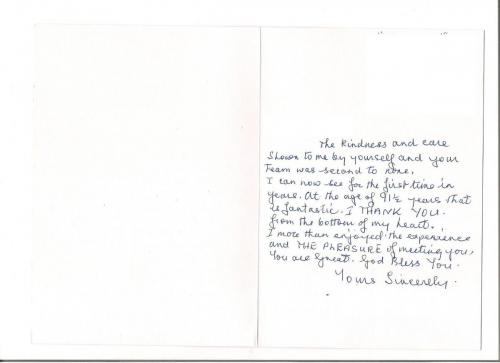 The kindness and care
Shown to me by yourself and your
Team was second to none.
I can now see for the first time in
years. At the age of 91½ years that
is fantastic. I THANK YOU.
from the bottom of my heart.
I more than enjoyed the experience
and THE PLEASURE of meeting you,
You are Great. God Bless You.
Yours Sincerely.